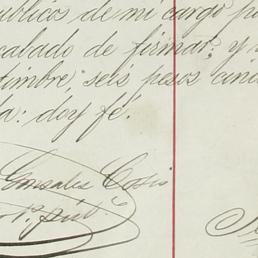 públicos de mi cargo po
cabado de firmar; y
timbre, seis pesos cinc
da: doy fé.
Gonzalez Cosio